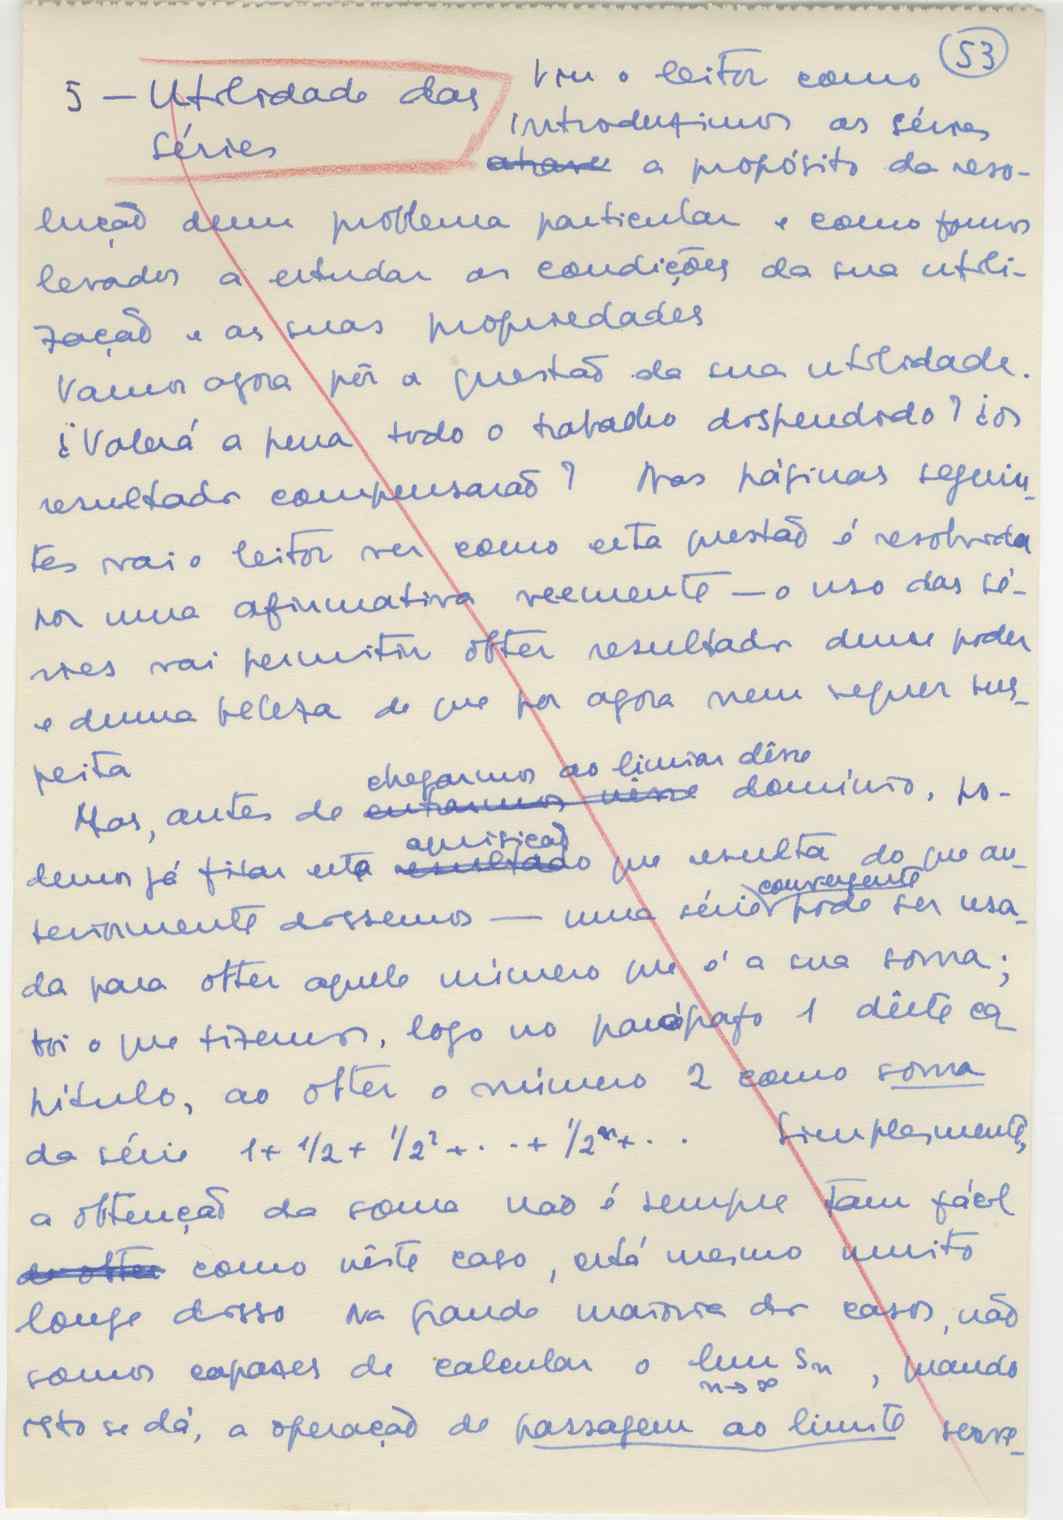 53
5 — Utilidade das
Séries
Viu o leitor como
introduzimos as séries
atrave a propósito da reso-
lução dum problema particular e como fomos
levados a estudar as condições da sua utili-
zação e as suas propriedades
Vamos agora pôr a questão da sua utilidade.
¿Valerá a pena todo o trabalho dispendido? ¿os
resultados compensarão? Nas páginas seguin-
tes vai o leitor ver como esta questão é resolvida
por uma afirmativa veemente — o uso das sé-
ries vai permitir obter resultados dum poder
e duma beleza de que por agora nem sequer sus-
peita
chegarmos ao limiar dêsse
Mas, antes de entrarmos nesse domínio, po-
aquisição
demos já fixar esta resultado que resulta do que an-
convergente
teriormente dissemos — uma série pode ser usa-
da para obter aquele número que é a sua soma;
foi o que fizemos, logo no parágrafo 1 dêste ca
pítulo, ao obter o número 2 como soma
da série 1+ 1/2 + 1/2² + . . . + 1/2ⁿ + . . . Simplesmente,
a obtenção da soma não é sempre tam fácil
de obter como nêste caso, está mesmo muito
longe disso Na grande maioria dos casos, não
somos capazes de calcular o lim Sn , quando
n→∞
isto se dá, a operação de passagem ao limite serve-